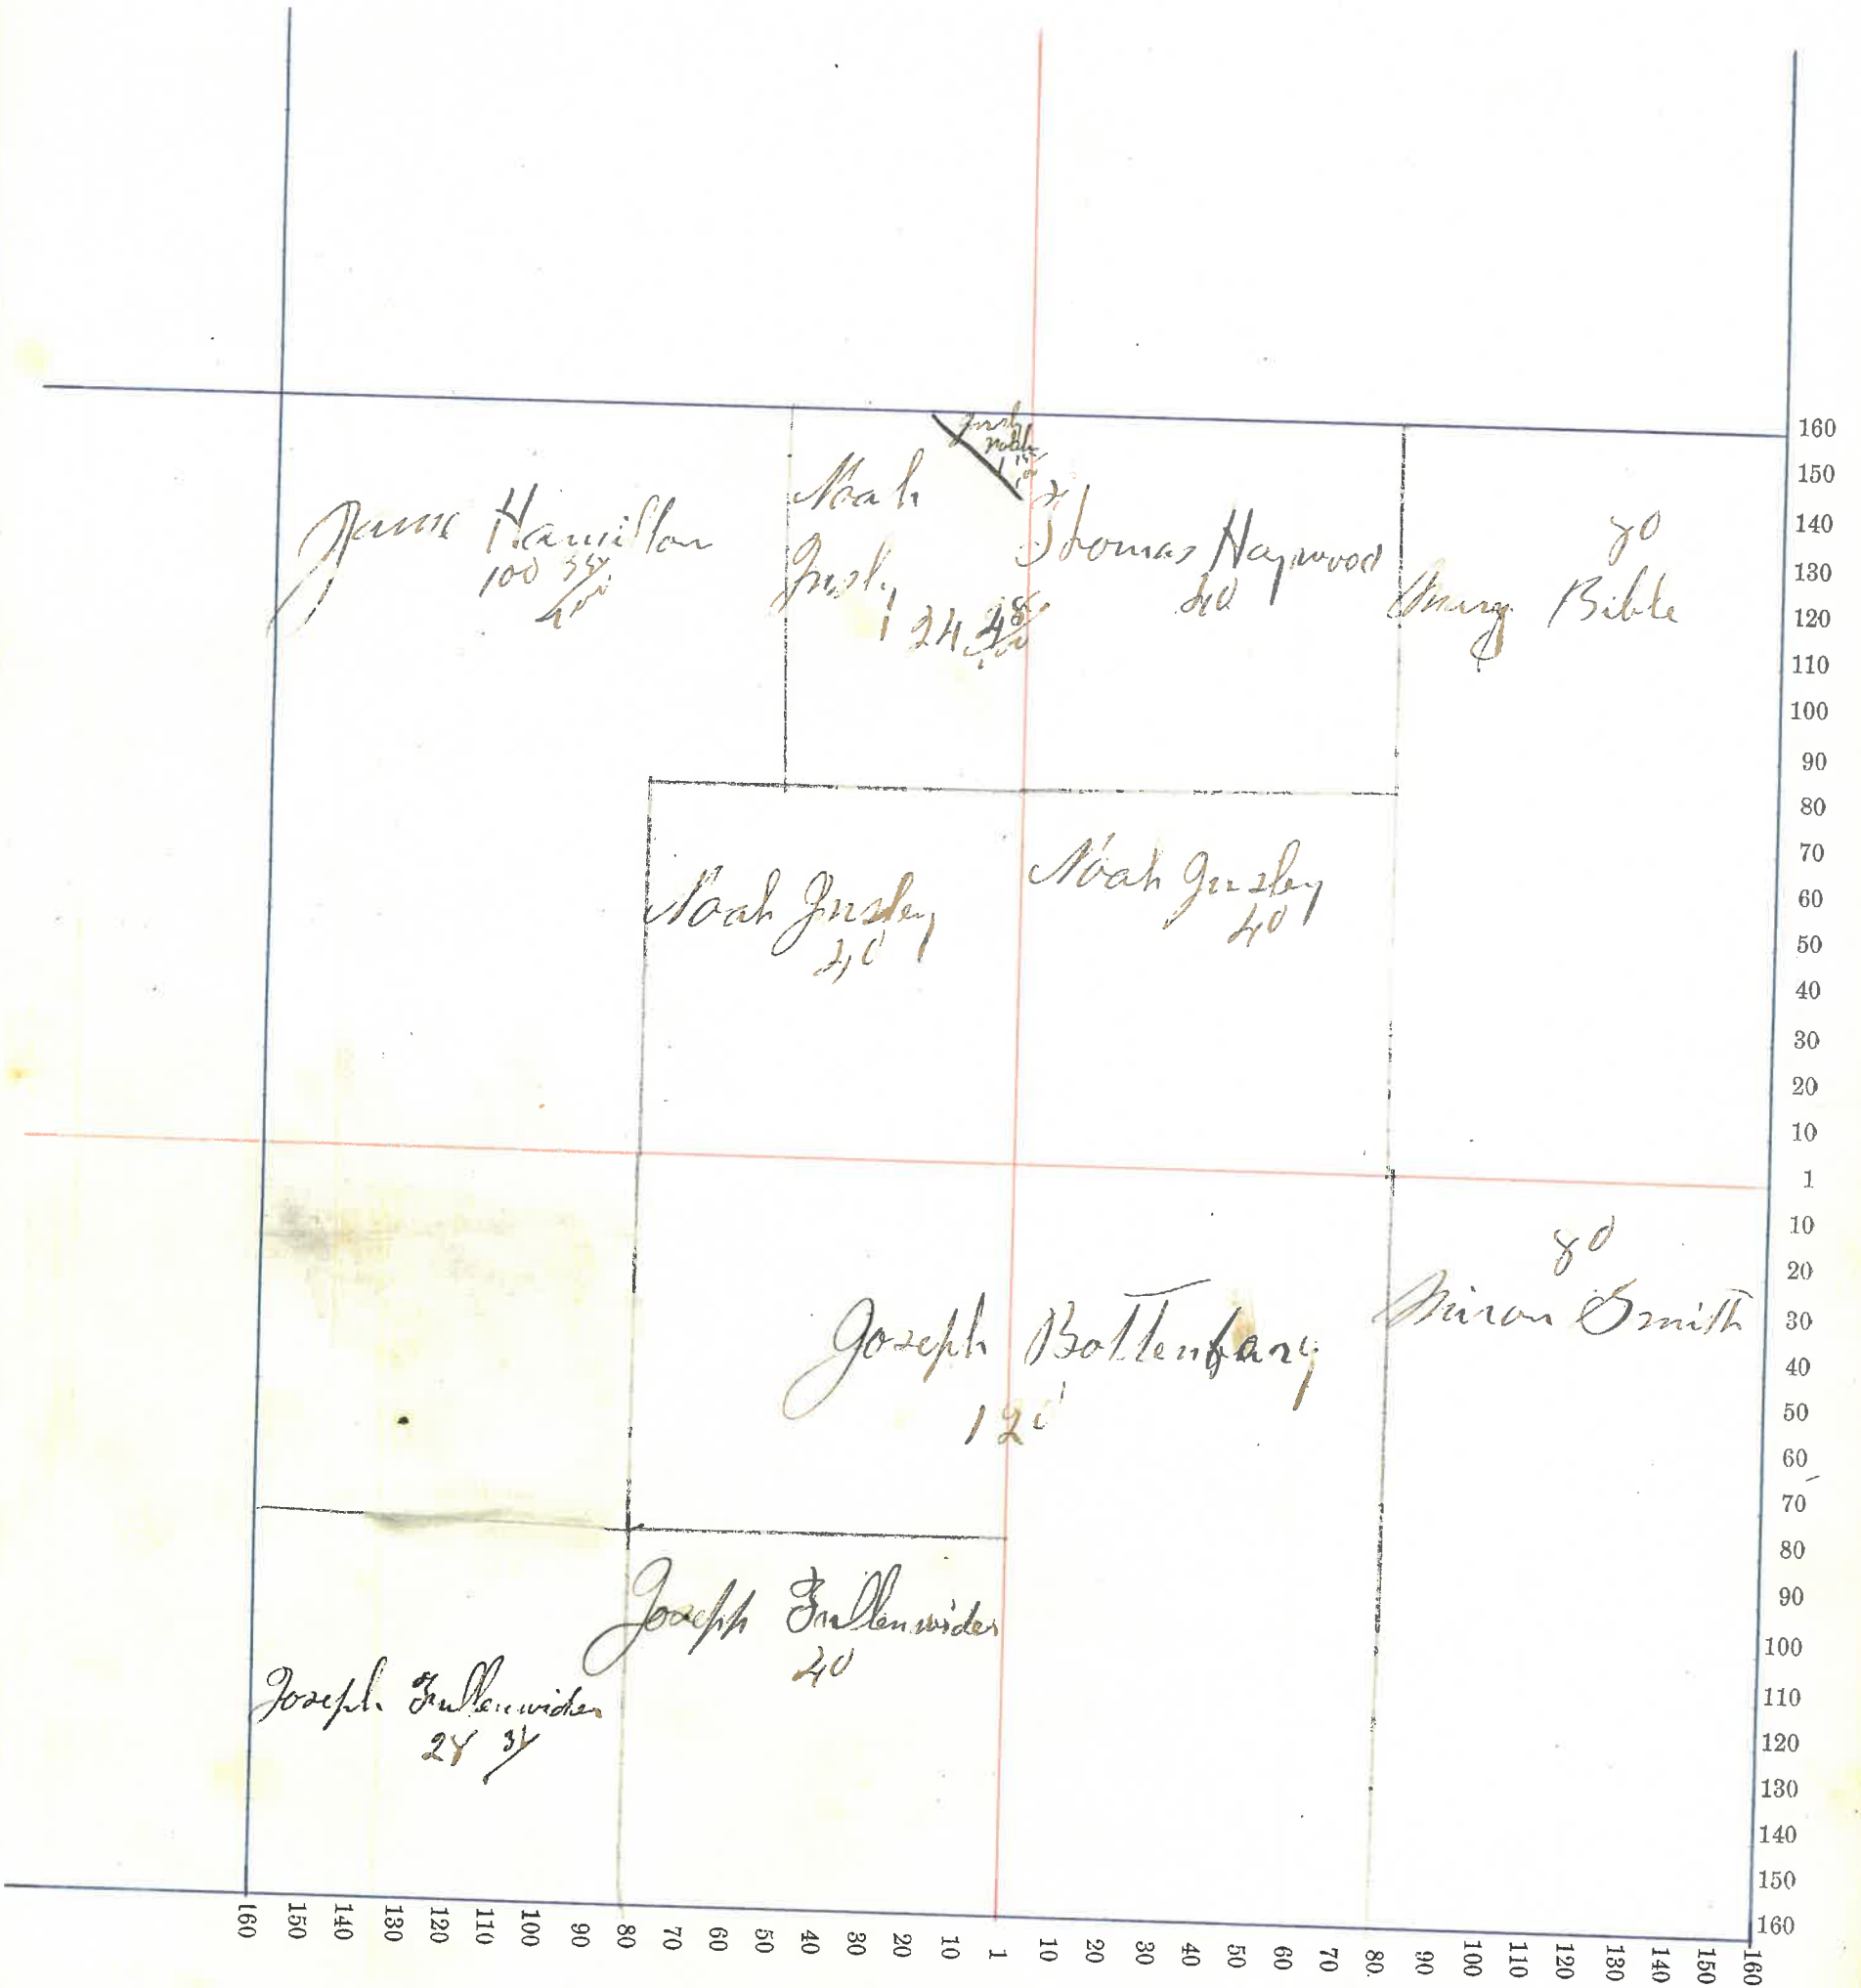 Noah
1 15/100
James Hamilton
100 35/400
Noah
Insley
24 48/100
Thomas Haywood
40
80
Mary Bible
Noah Insley
40
Noah Insley
40
Joseph Bottenfary
120
80
Miron Smith
Joseph Fullenwider
40
Joseph Fullenwider
28
160
150
140
130
120
110
100
90
80
70
60
50
40
30
20
10
1
10
20
30
40
50
60
70
80
90
100
110
120
130
140
150
160
160 150 140 130 120 110 100 90 80 70 60 50 40 30 20 10 1 10 20 30 40 50 60 70 80 90 100 110 120 130 140 150 160